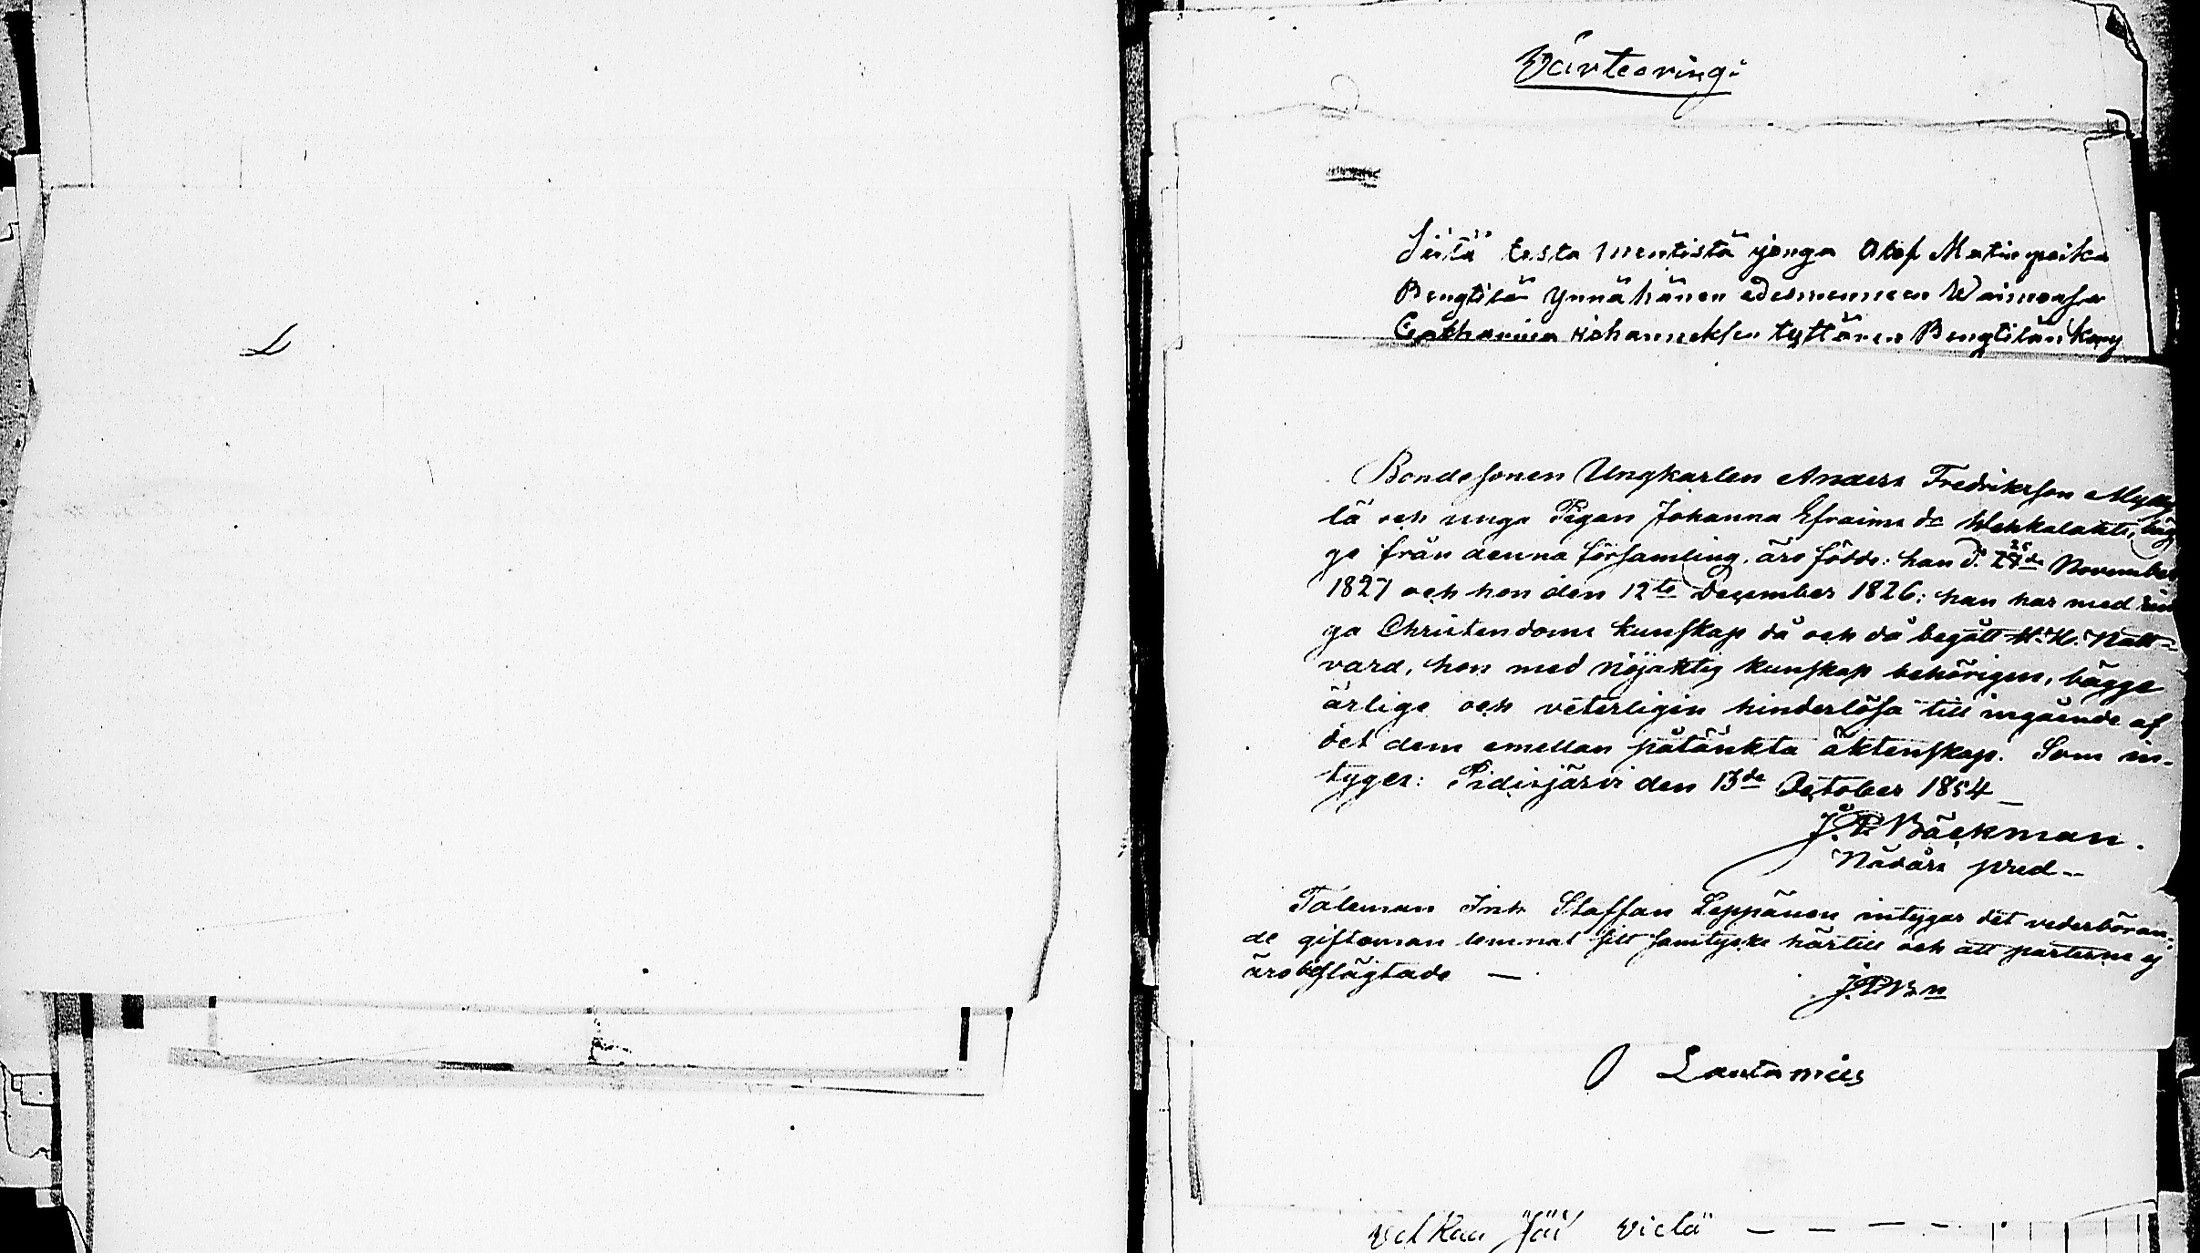 Värtearing:
Siitä testamentistä jonga Olof Matinpoika
Bengtilä ynnä hänen edesmenneen Waimonsa
Catharina Johanneksen tyttären Bengtilän kans
Bondesonen Ungkarlen Anders Fredriksson Mylly
lä och unga Pigan Johanna Efraims dr Wehkalahti, bäg
ge från denna församling, äro födde: han d. 25 November
1827 och hon den 12te December 1826; han har med rin
ga Christendoms kunskap då och då begått H. H. Natt-
vard, hon med nöjaktig kunskap behörigen, bägge
ärlige och veterligen hinderlösa till ingående af
det dem emellan påtänkta äktenskap. Som in-
tyger: Pidisjärvi den 13de October 1854
J. P. Bäckman.
Nådårs pred.
Taleman Inh. Staffan Leppänen intygar det vederböran-
de giftoman lemnat sitt samtycke härtill och att parterne ej
äro beslägtade —
J. P. Bn
Lautamies
velkaa jäi vielä — — — —